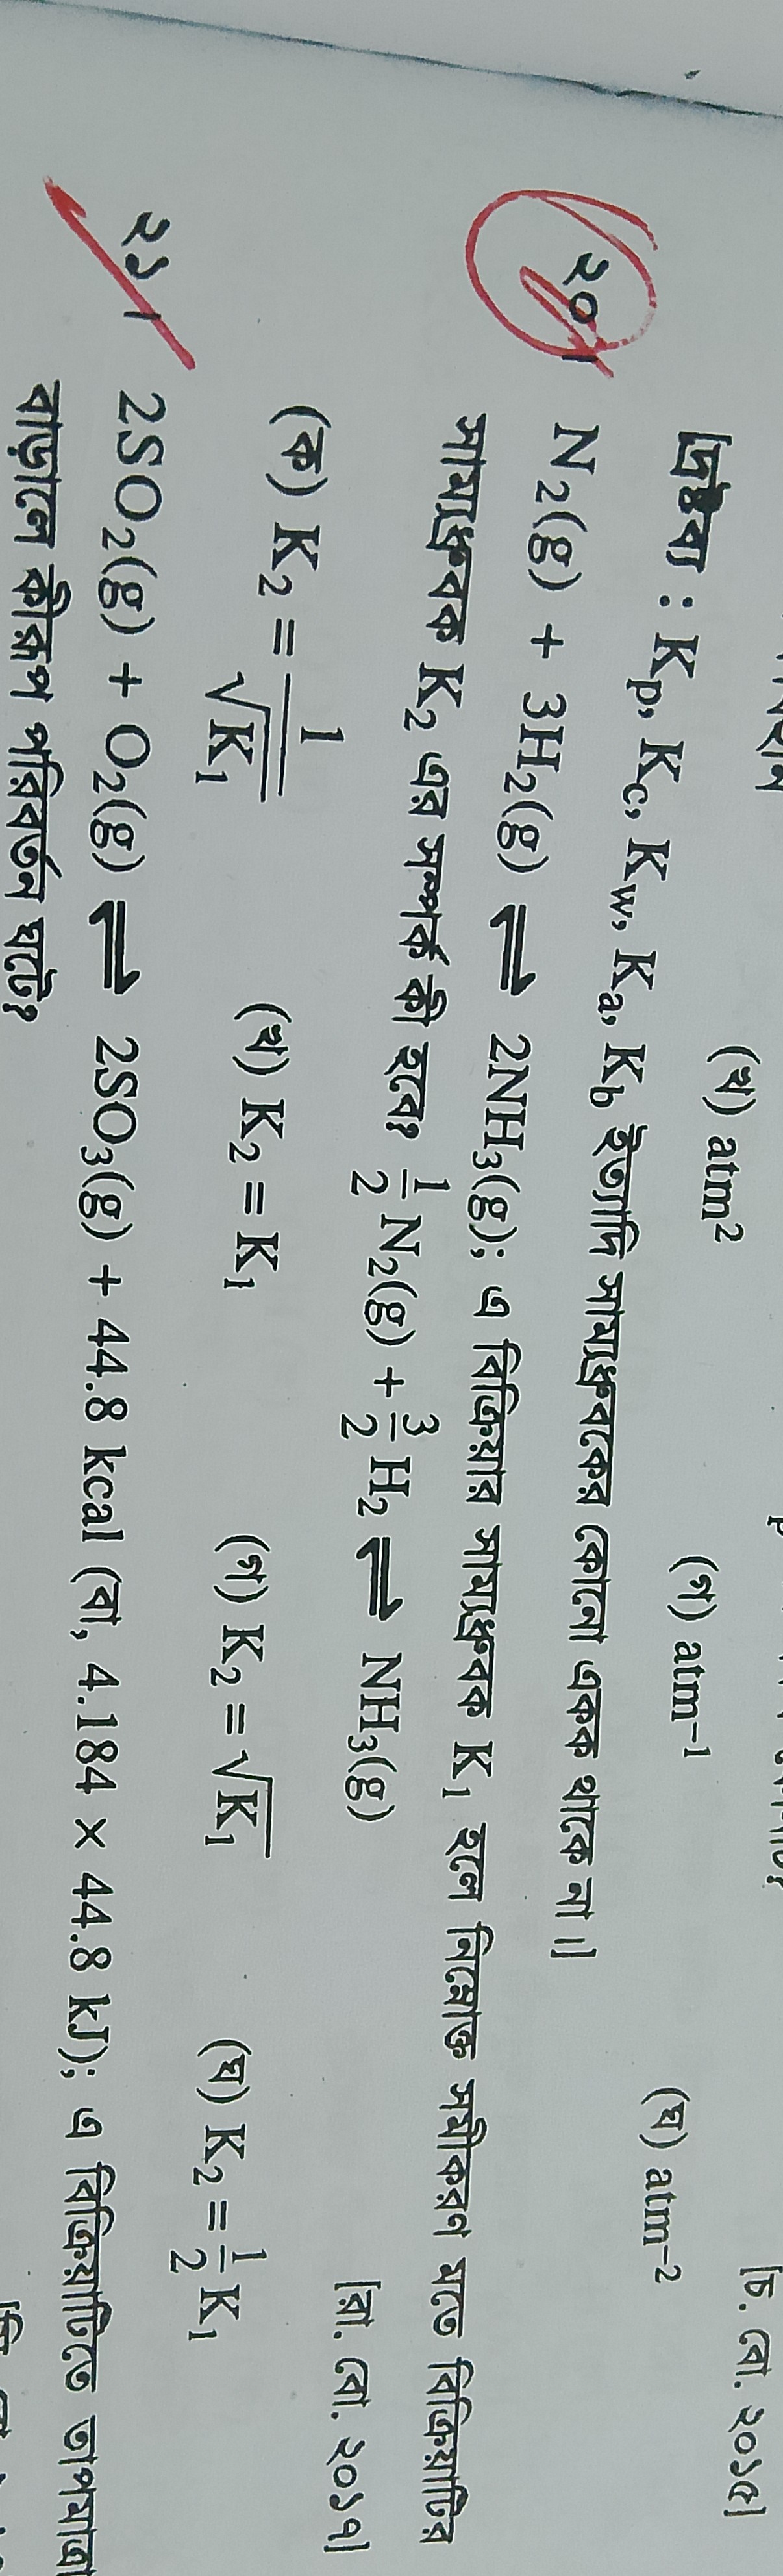 (খ) atm² (গ) atm⁻¹ (ঘ) atm⁻² [চ. বো. ২০১৫]
[দ্রষ্টব্য : Kp, Kc, Kw, Ka, Kb ইত্যাদি সাম্যধ্রুবকের কোনো একক থাকে না।]
২০। N₂(g) + 3H₂(g) ⇌ 2NH₃(g); এ বিক্রিয়ার সাম্যধ্রুবক K₁ হলে নিম্নোক্ত সমীকরণ মতে বিক্রিয়াটির
সাম্যধ্রুবক K₂ এর সম্পর্ক কী হবে? 1/2 N₂(g) + 3/2 H₂ ⇌ NH₃(g) [রা. বো. ২০১৭]
(ক) K₂ = 1/√K₁ (খ) K₂ = K₁ (গ) K₂ = √K₁ (ঘ) K₂ = 1/2 K₁
২১। 2SO₂(g) + O₂(g) ⇌ 2SO₃(g) + 44.8 kcal (বা, 4.184 × 44.8 kJ); এ বিক্রিয়াটিতে তাপমাত্রা
বাড়ালে কীরূপ পরিবর্তন ঘটে?